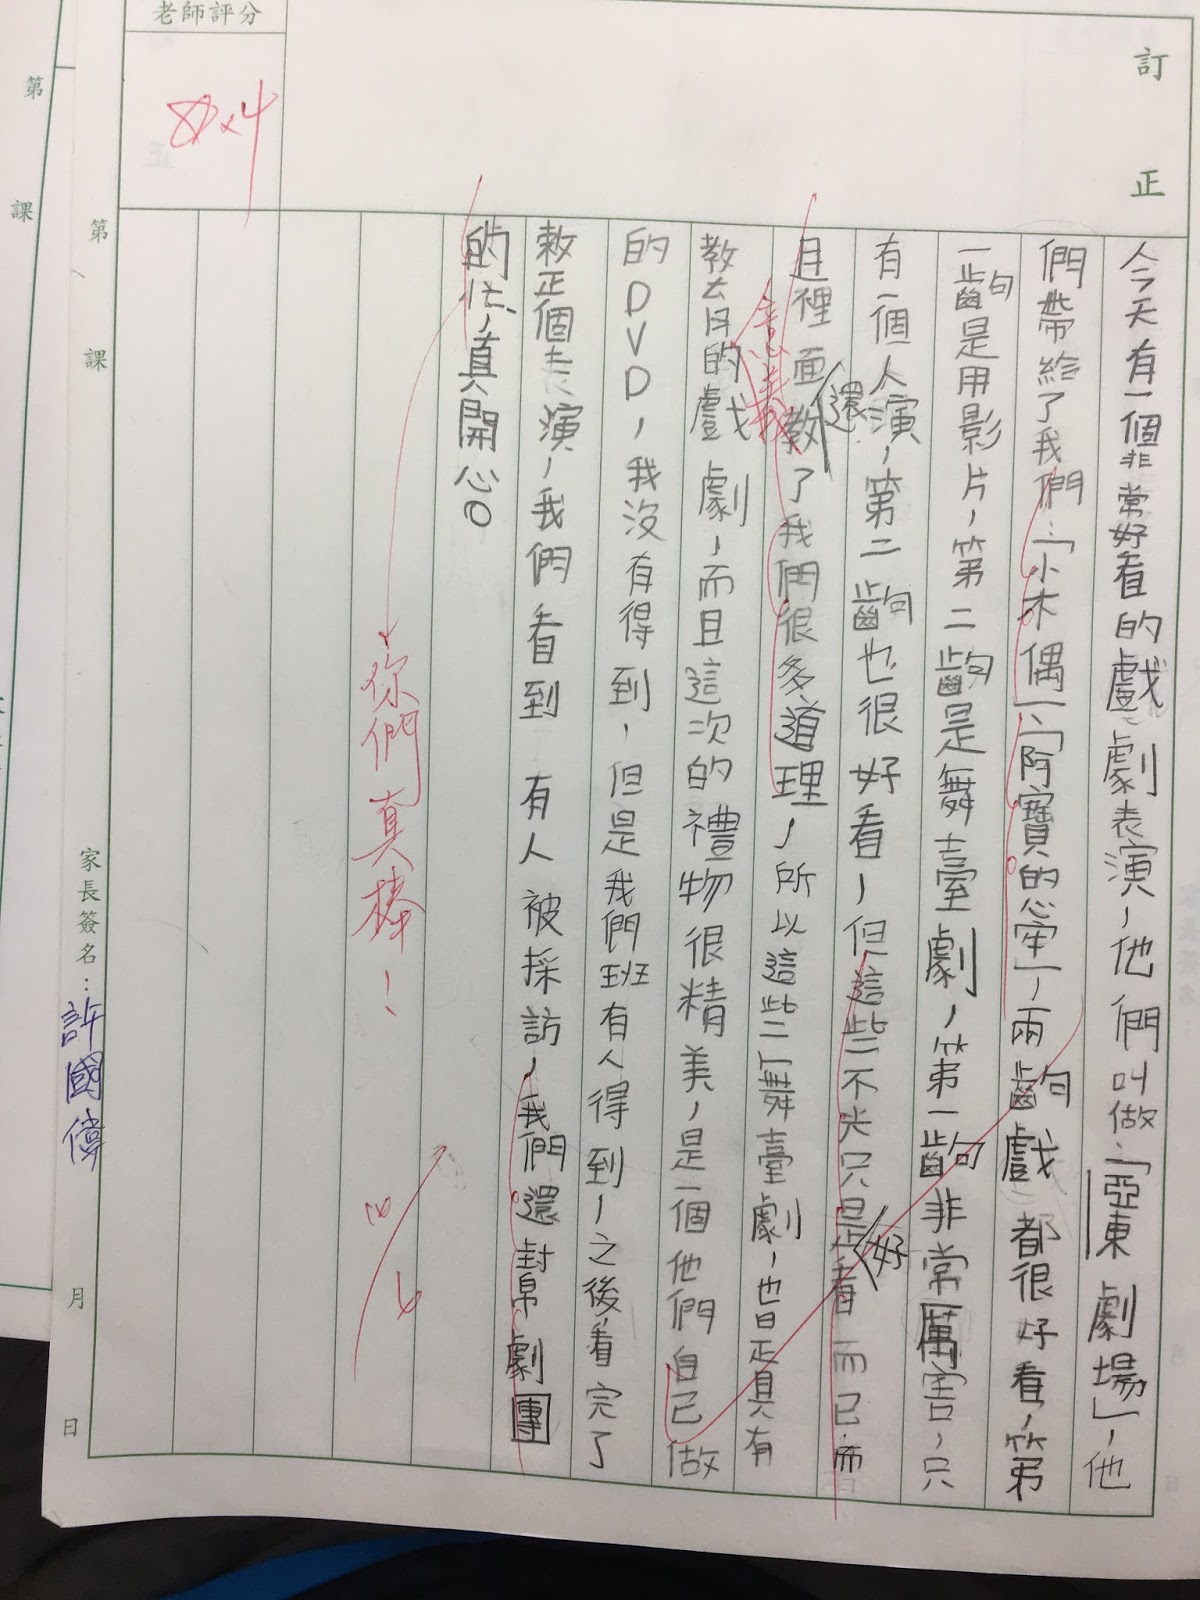 訂正
今天有一個非常好看的戲劇表演，他們叫做：「亞東劇場」，他
們帶給了我們：「小木偶」、「阿寶的心牢」，兩齣戲都很好看，第
一齣是用影片，第二齣是舞臺劇，第一齣非常厲害，只
有一個人演，第二齣也很好看，但這些不光只是好看而已，而
且裡面還教了我們很多道理，所以這些「舞臺劇」，皆正具有
教育的戲劇，而且這次的禮物很精美，是一個他們自己做
意義
的DVD，我沒有得到，但是我們班有人得到，之後看完了
敕正個表演，我們看到有人被採訪，我們還封帛劇團
的忙，真開心。
你們真棒！
老師評分
8×4
第 課
家長簽名：許國偉
月 日
第 課